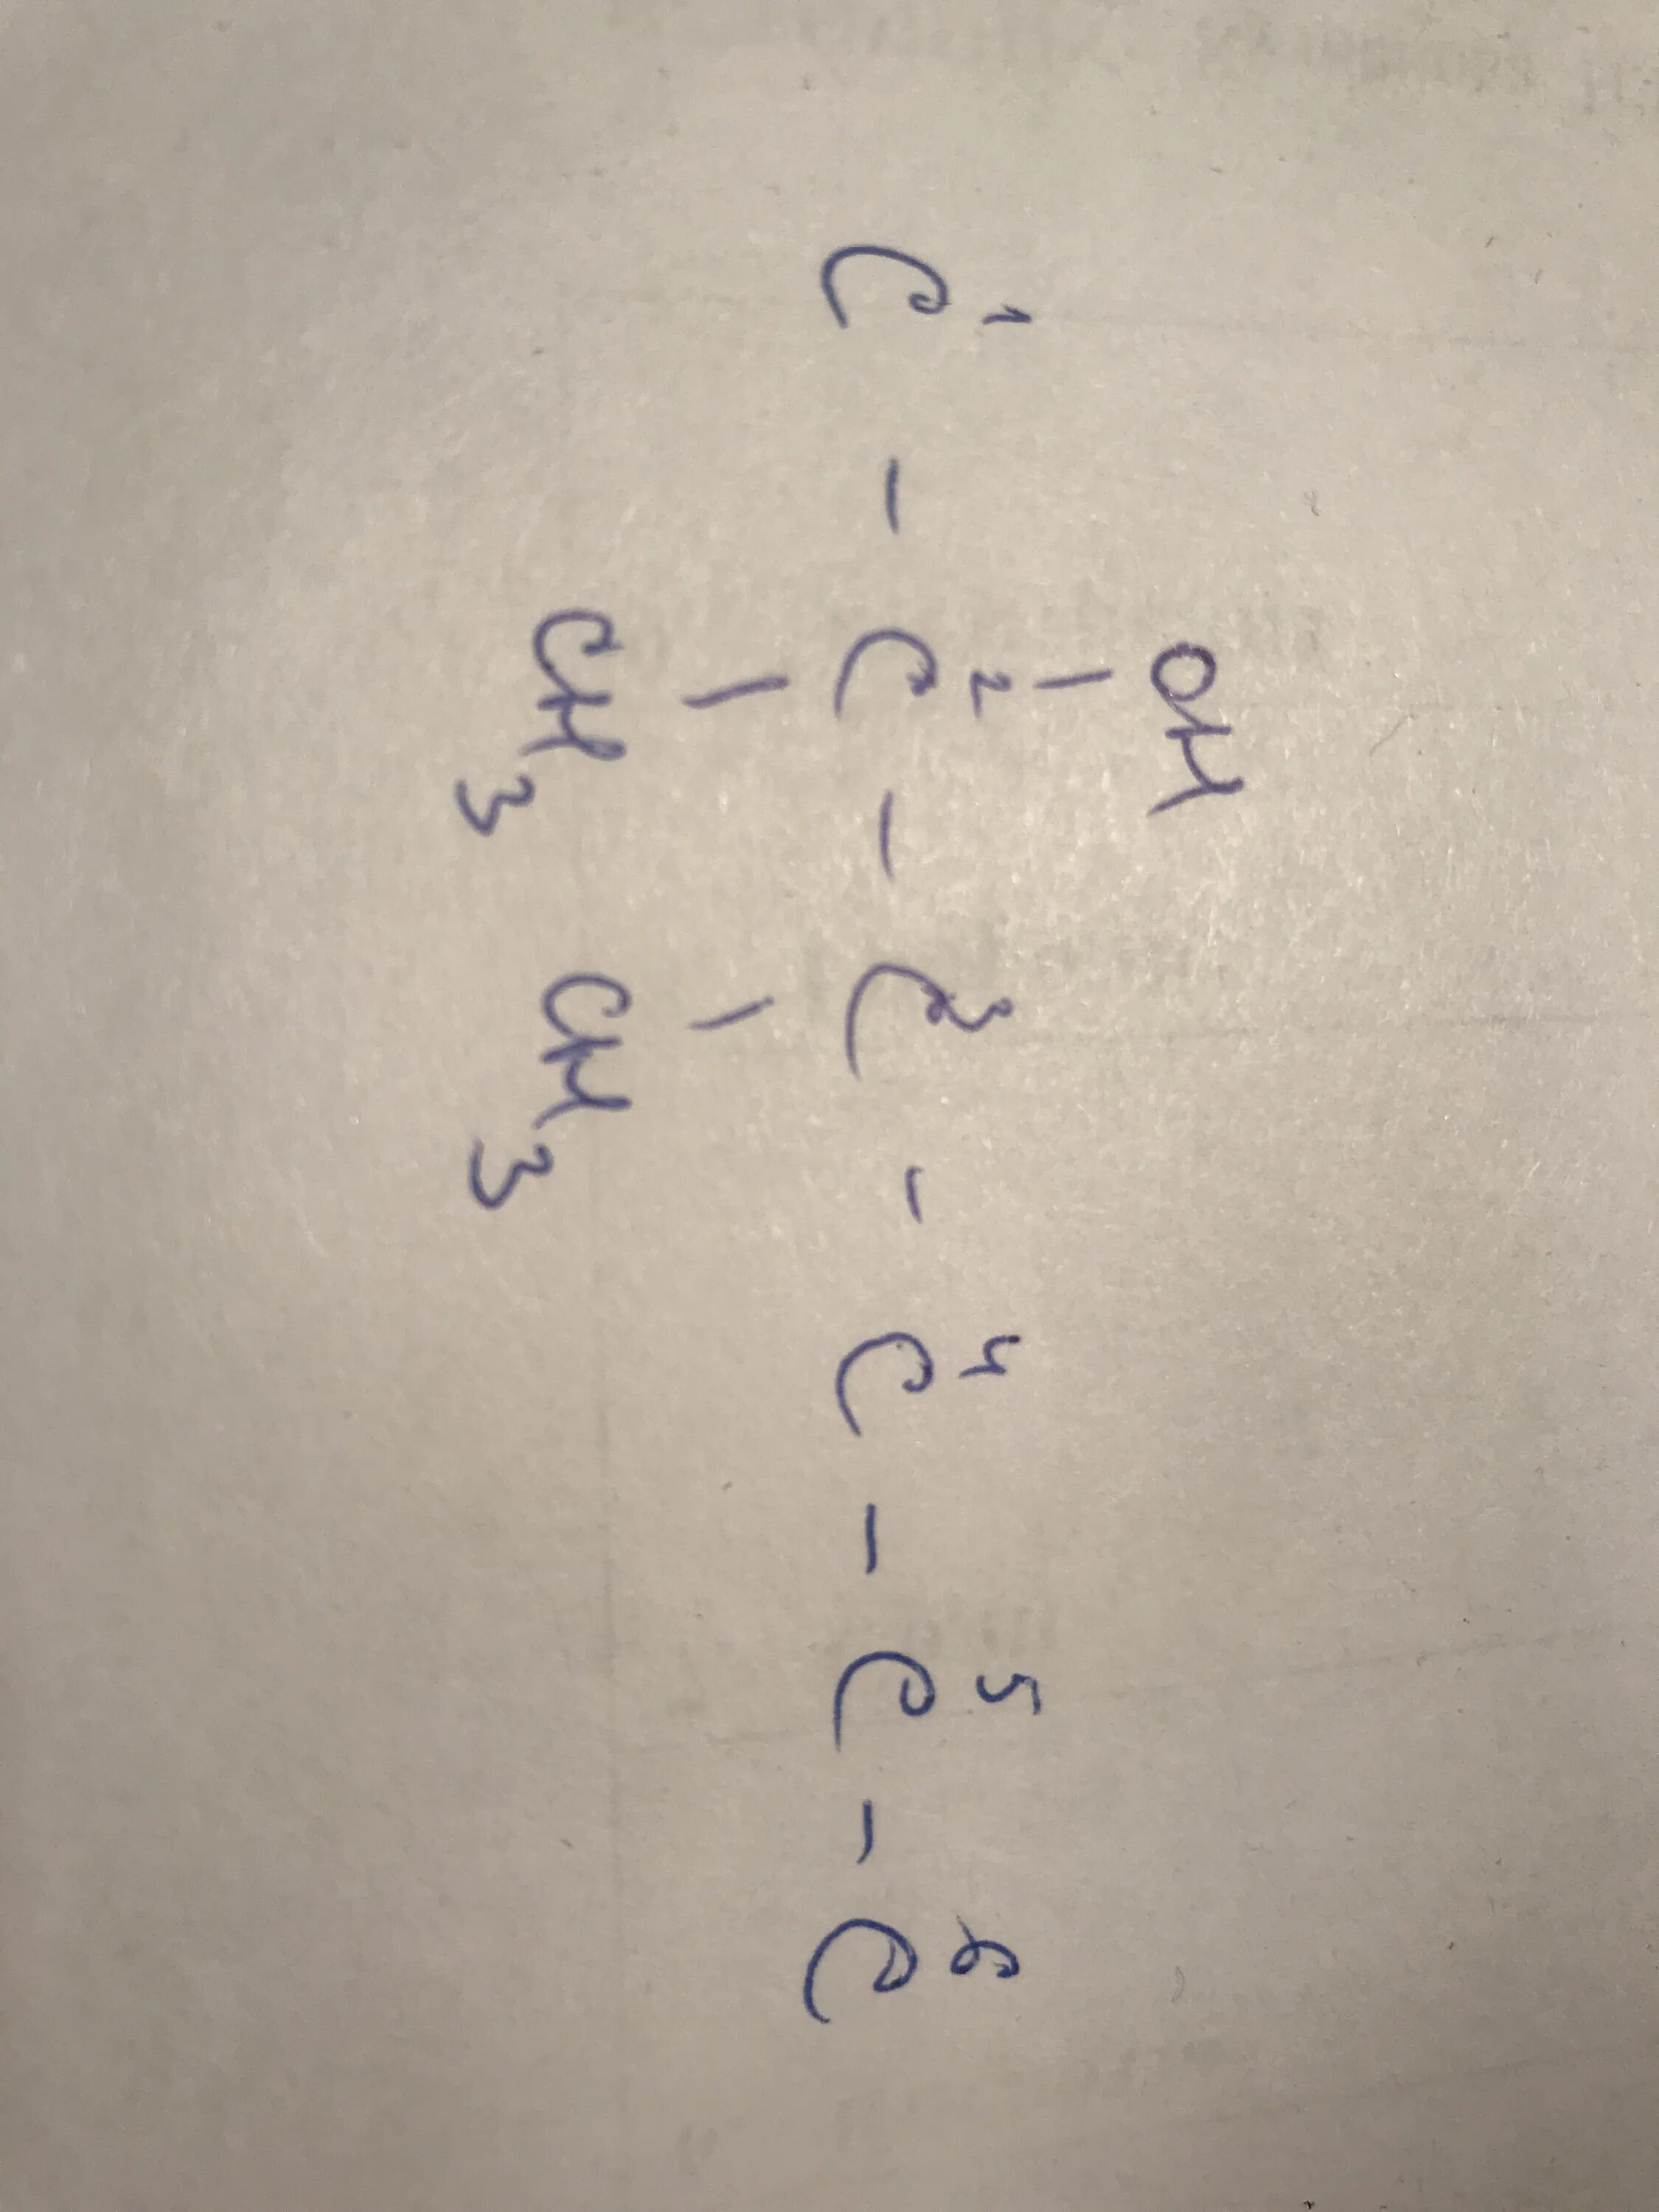 OH
C¹ - C² - C³ - C⁴ - C⁵ - C⁶
CH₃ CH₃